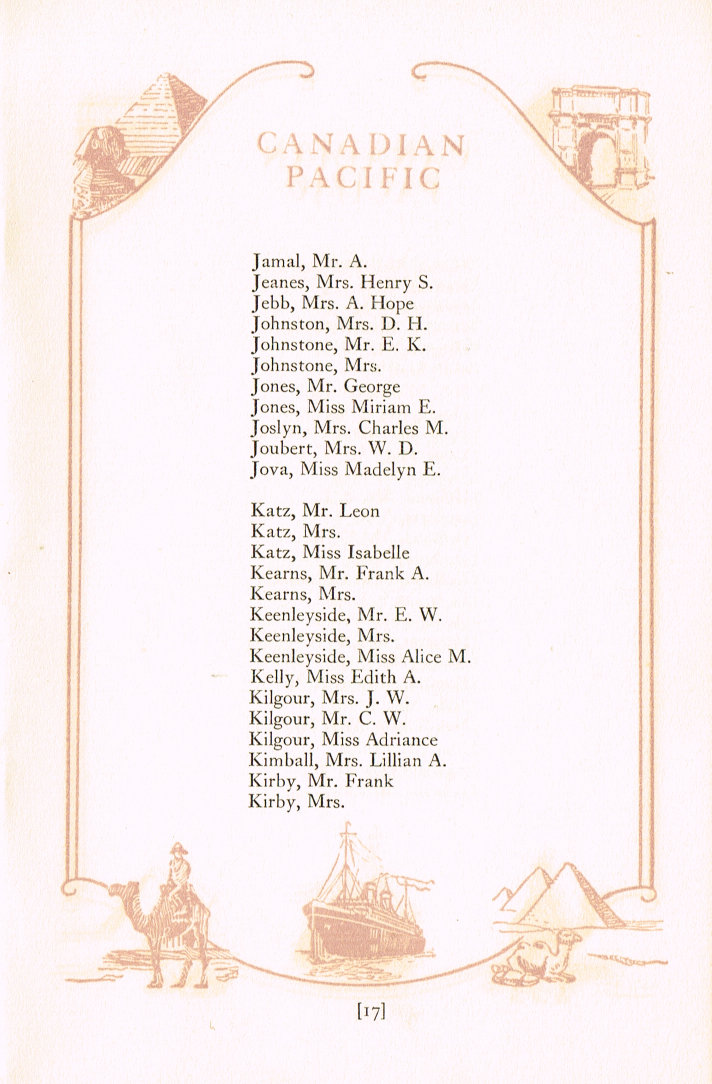 CANADIAN
PACIFIC
Jamal, Mr. A.
Jeanes, Mrs. Henry S.
Jebb, Mrs. A. Hope
Johnston, Mrs. D. H.
Johnstone, Mr. E. K.
Johnstone, Mrs.
Jones, Mr. George
Jones, Miss Miriam E.
Joslyn, Mrs. Charles M.
Joubert, Mrs. W. D.
Jova, Miss Madelyn E.
Katz, Mr. Leon
Katz, Mrs.
Katz, Miss Isabelle
Kearns, Mr. Frank A.
Kearns, Mrs.
Keenleyside, Mr. E. W.
Keenleyside, Mrs.
Keenleyside, Miss Alice M.
Kelly, Miss Edith A.
Kilgour, Mrs. J. W.
Kilgour, Mr. C. W.
Kilgour, Miss Adriance
Kimball, Mrs. Lillian A.
Kirby, Mr. Frank
Kirby, Mrs.
[17]